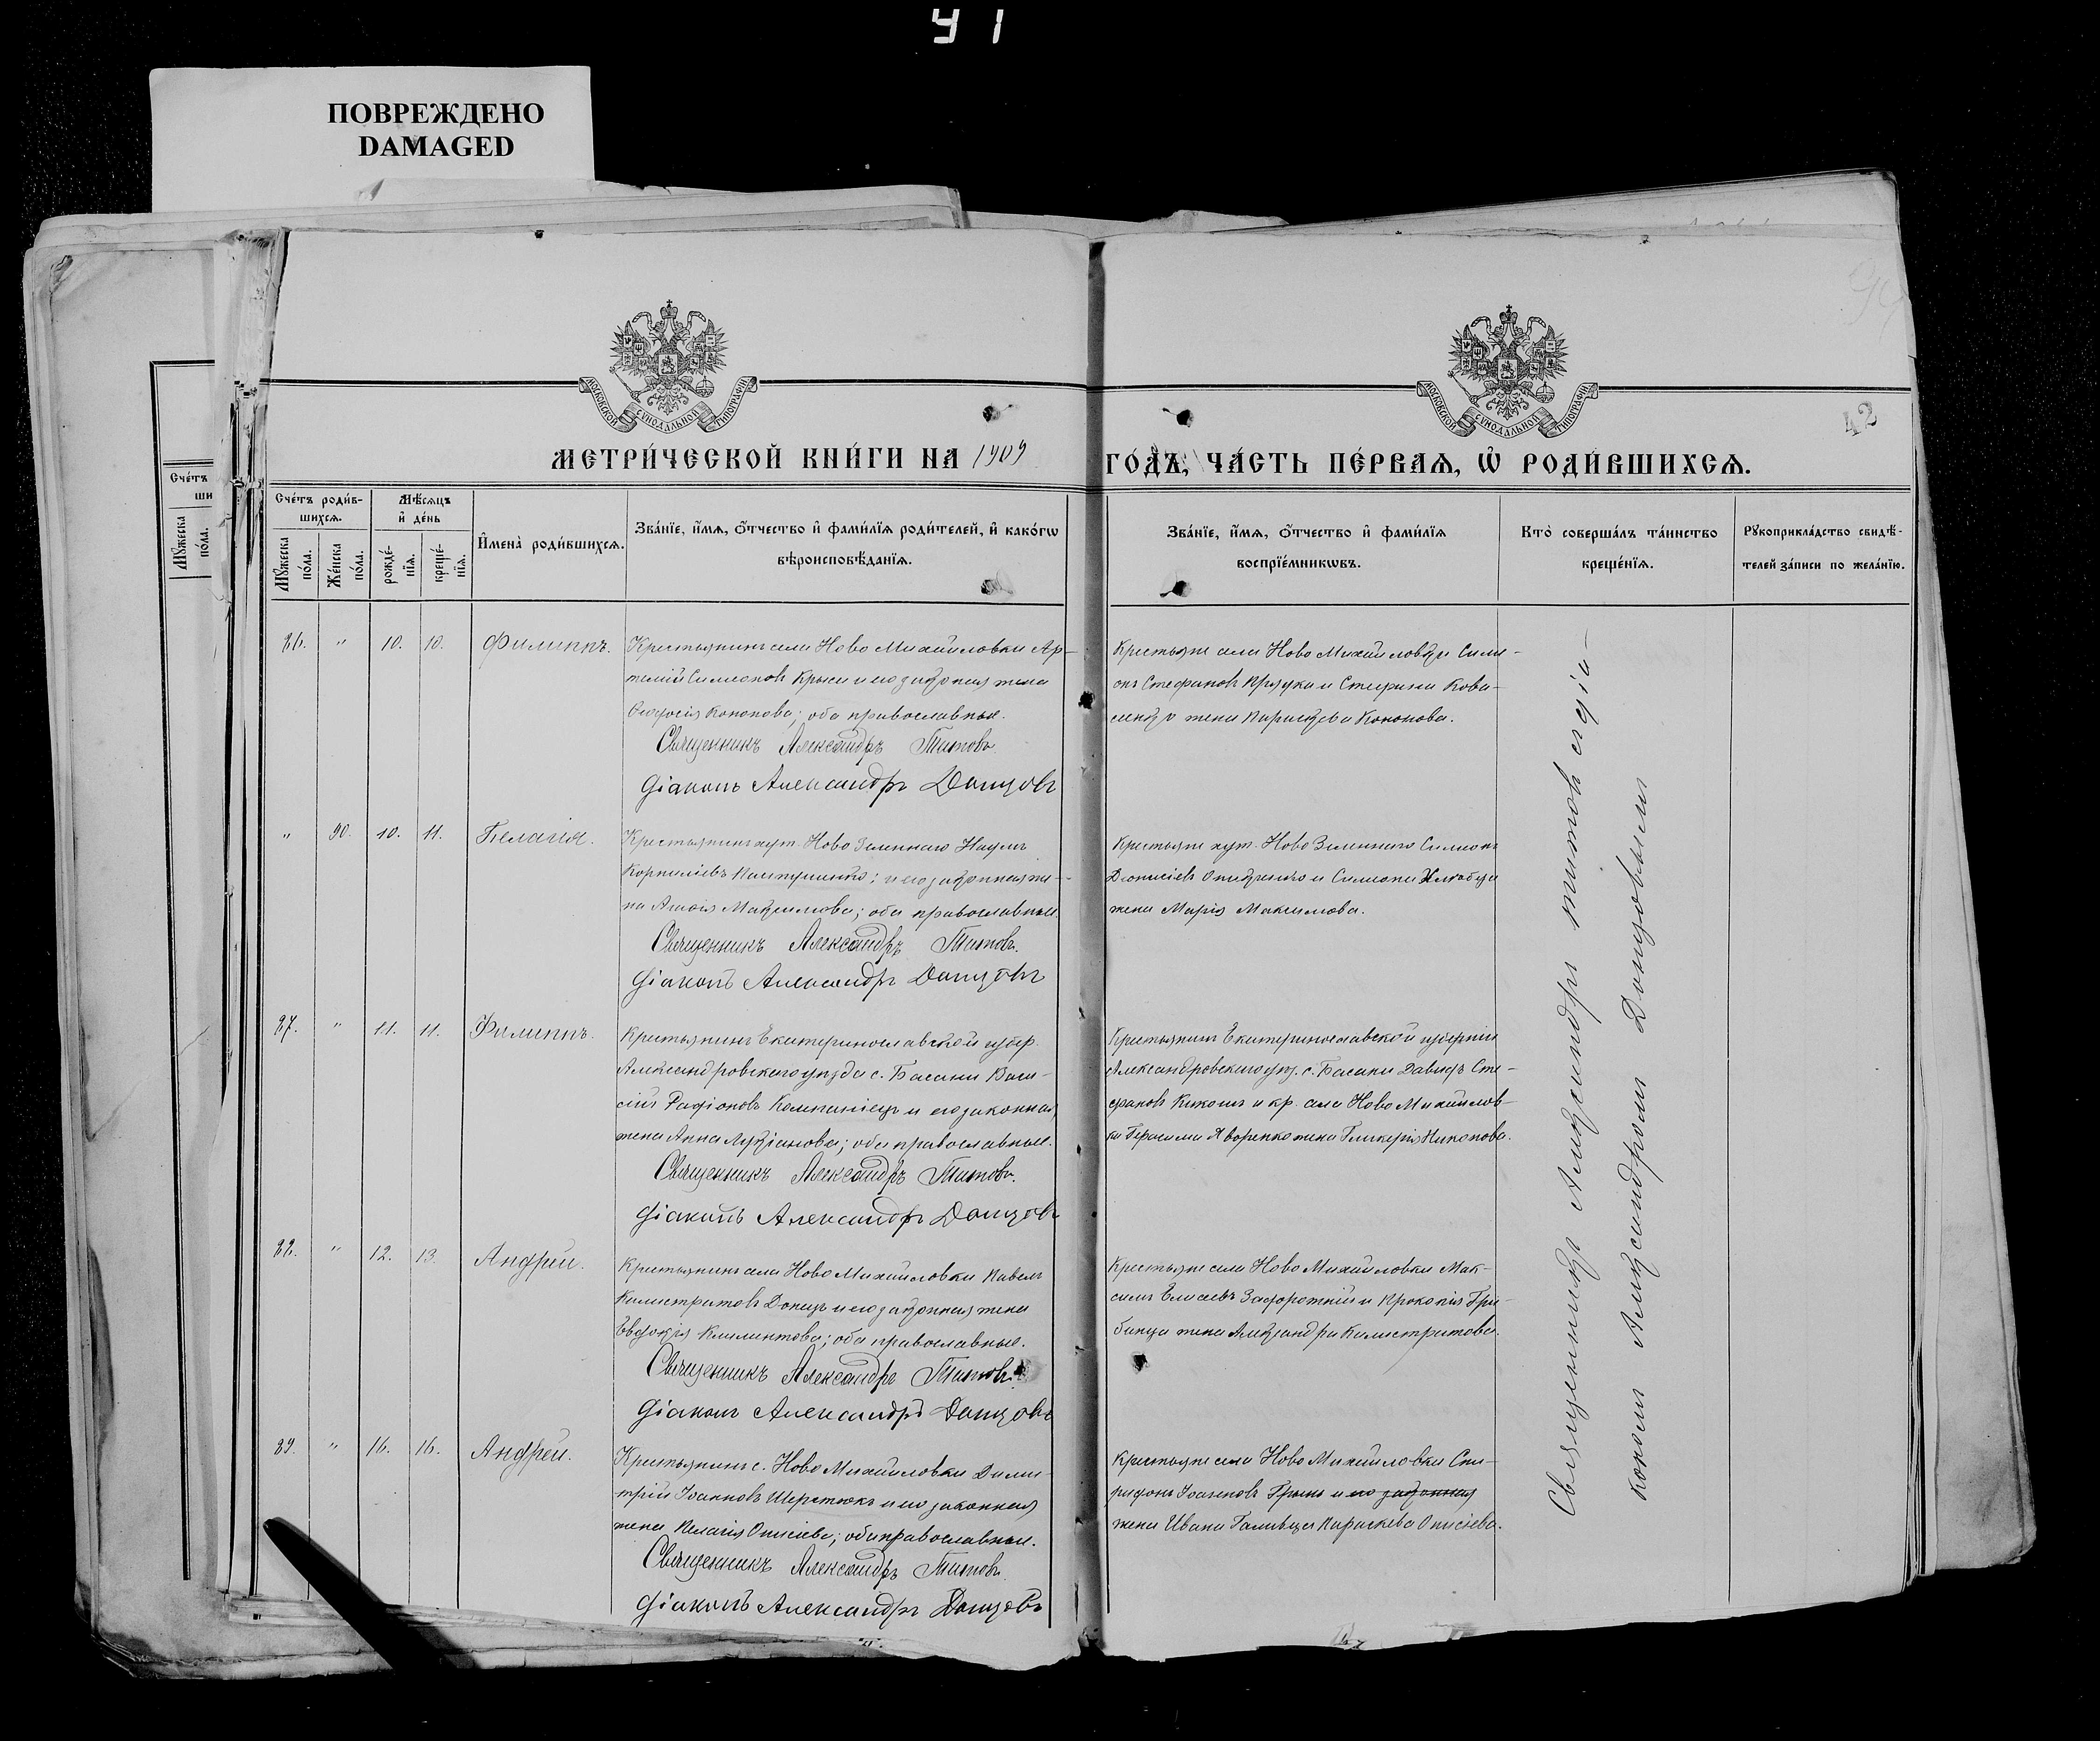 41
ПОВРЕЖДЕНО
DAMAGED
42
МОСКОВСКОЙ СѴНОДАЛЬНОЙ ТИПОГРАФІИ
МОСКОВСКОЙ СѴНОДАЛЬНОЙ ТИПОГРАФІИ
МЕТРИ́ЧЕСКОЙ КНИ́ГИ НА 1909 ГО́ДЪ, ЧА́СТЬ ПЕ́РВАѦ, Ѡ҆ РОДИ́ВШИХСѦ.
Сче́тъ
ши
Мꙋ́жеска по́ла.
Сче́тъ роди́в-
шихсѧ.
Мꙋ́жеска по́ла.
Же́нска по́ла.
Мѣ́сѧцъ
и҆ де́нь
рожде́-
нїѧ.
креще́-
нїѧ.
И҆мена̀ роди́вшихсѧ.
Зва́нїе, и҆́мѧ, ѻ҆́тчество и҆ фами́лїѧ роди́телей, и҆ како́гѡ
вѣроисповѣ́данїѧ.
Зва́нїе, и҆́мѧ, ѻ҆́тчество и҆ фами́лїѧ
воспрїе́мникѡвъ.
Кто̀ соверша́лъ та́инство
креще́нїѧ.
Рꙋкоприкла́дство свидѣ́-
телей за́писи по жела́нїю.
86. " 10. 10. Филиппъ.
Крестьянинъ села Ново Михайловки Ар-
темій Симеоновъ Крыса и его законная жена
Феодосія Кононова; оба православные.
Священникъ Александръ Титовъ.
Діаконъ Александръ Донцовъ
Крестьяне села Ново Михайловки Симе-
онъ Стефановъ и Стефана Кова-
ленко жена Параскева Кононова.
" 90. 10. 11. Пелагія.
Крестьянинъ хут. Ново Зеленнаго Наумъ
Корниліевъ и его законная же-
на Агаѳія Максимова; оба православные.
Священникъ Александръ Титовъ.
Діаконъ Александръ Донцовъ
Крестьяне хут. Ново Зеленнаго Симеонъ
Діонисіевъ Онищенко и Симеона
жена Марія Максимова.
87. " 11. 11. Филиппъ.
Крестьянинъ Екатеринославской губер.
Александровскаго уезда с. Басани Васи-
лій Радіоновъ Компаніецъ и его законная
жена Анна Лукіанова; оба православные.
Священникъ Александръ Титовъ.
Діаконъ Александръ Донцовъ
Крестьянинъ Екатеринославской губерніи
Александровскаго уез. с. Басани Давидъ Сте-
фановъ Кикошъ и кр. села Ново Михайлов-
ки Герасима Яворенко жена Гликерія Никонова.
88. " 12. 13. Андрей.
Крестьянинъ села Ново Михайловки Павелъ
Калистратовъ Донецъ и его законная жена
Евдокія Климентова; оба православные.
Священникъ Александръ Титовъ.
Діаконъ Александръ Донцовъ
Крестьяне села Ново Михайловки Мак-
симъ Елисеевъ Запорожній и Прокопія Гри-
банца жена Александра Калистратова.
89. " 16. 16. Андрей.
Крестьянинъ с. Ново Михайловки Дими-
трій Іоанновъ Шерстюкъ и его законная
жена Пелагія Онисіева; оба православные.
Священникъ Александръ Титовъ.
Діаконъ Александръ Донцовъ
Крестьяне села Ново Михайловки Спи-
ридонъ Іоанновъ и его законная
жена Ивана Параскева Онисіева.
Священникъ Александръ Титовъ съ діа-
кономъ Александромъ Донцовымъ